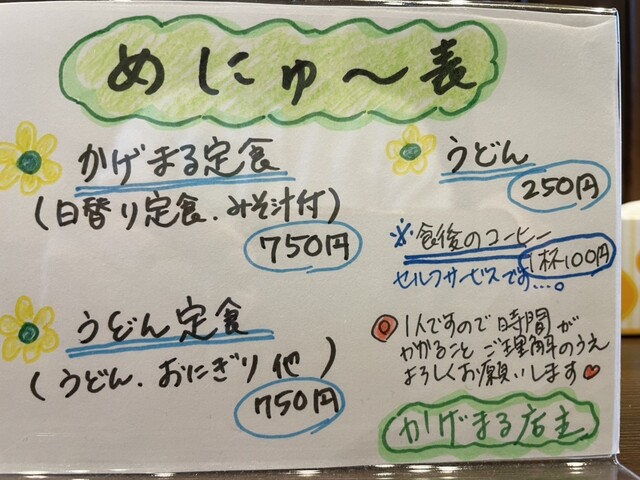 めにゅ〜表
かげまる定食
(日替り定食.みそ汁付)
750円
うどん定食
(うどん.おにぎり他)
750円
うどん
250円
※食後のコーヒー
1杯100円
セルフサービスです...。
1人ですので時間が
かかることご理解のうえ
よろしくお願いします
かげまる店主